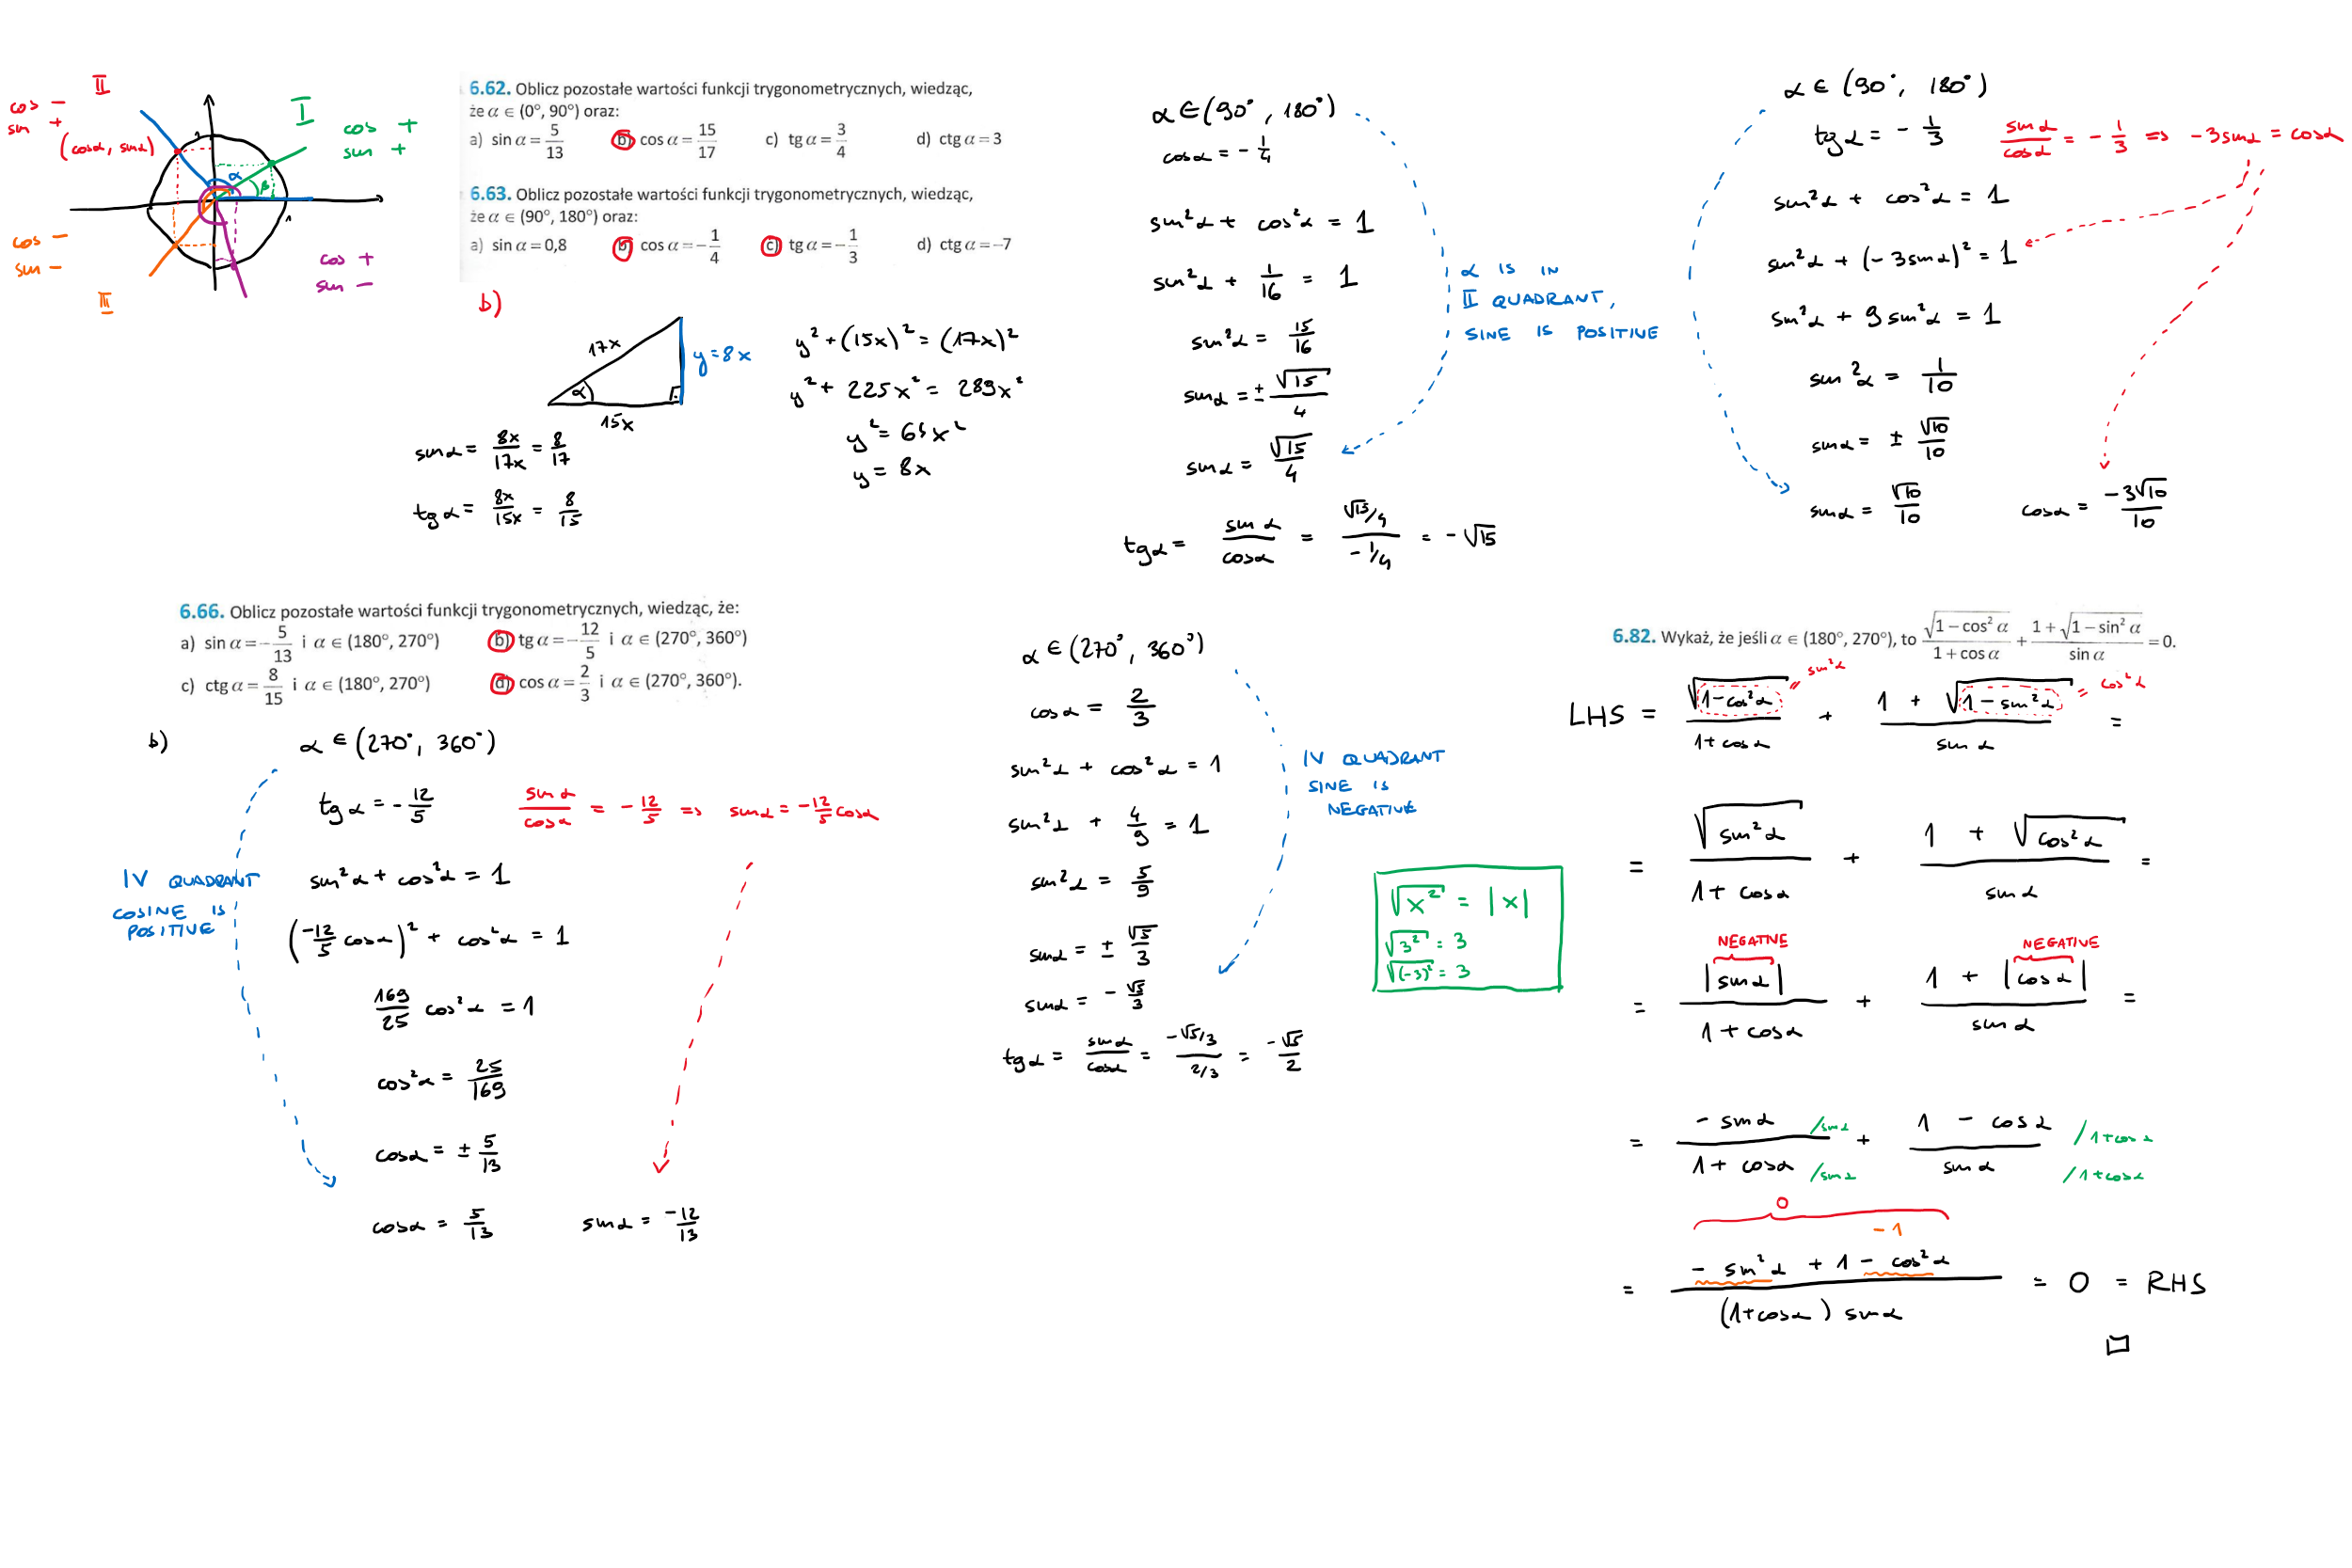 II
cos −
sin +
(cosα, sinα)
I
cos +
sin +
α
β
1
1
cos −
sin −
III
cos +
sin −
6.62. Oblicz pozostałe wartości funkcji trygonometrycznych, wiedząc,
że α ∈ (0°, 90°) oraz:
a) sin α = 5/13 b) cos α = 15/17 c) tg α = 3/4 d) ctg α = 3
6.63. Oblicz pozostałe wartości funkcji trygonometrycznych, wiedząc,
że α ∈ (90°, 180°) oraz:
a) sin α = 0,8 b) cos α = −1/4 c) tg α = −1/3 d) ctg α = −7
b)
17x
y = 8x
α
15x
y² + (15x)² = (17x)²
y² + 225x² = 289x²
y² = 64x²
y = 8x
sinα = 8x/17x = 8/17
tgα = 8x/15x = 8/15
α ∈ (90°, 180°)
cosα = −1/4
sin²α + cos²α = 1
sin²α + 1/16 = 1
sin²α = 15/16
sinα = ± √15/4
sinα = √15/4
tgα = sinα/cosα = (√15/4)/(−1/4) = −√15
α IS IN
II QUADRANT,
SINE IS POSITIVE
α ∈ (90°, 180°)
tgα = −1/3
sinα/cosα = −1/3 => −3sinα = cosα
sin²α + cos²α = 1
sin²α + (−3sinα)² = 1
sin²α + 9sin²α = 1
sin²α = 1/10
sinα = ± √10/10
sinα = √10/10 cosα = −3√10/10
6.66. Oblicz pozostałe wartości funkcji trygonometrycznych, wiedząc, że:
a) sin α = −5/13 i α ∈ (180°, 270°) b) tg α = −12/5 i α ∈ (270°, 360°)
c) ctg α = 8/15 i α ∈ (180°, 270°) d) cos α = 2/3 i α ∈ (270°, 360°).
b)
α ∈ (270°, 360°)
tgα = −12/5
sinα/cosα = −12/5 => sinα = −12/5 cosα
sin²α + cos²α = 1
IV QUADRANT
COSINE IS
POSITIVE
(−12/5 cosα)² + cos²α = 1
169/25 cos²α = 1
cos²α = 25/169
cosα = ± 5/13
cosα = 5/13 sinα = −12/13
α ∈ (270°, 360°)
cosα = 2/3
sin²α + cos²α = 1
sin²α + 4/9 = 1
sin²α = 5/9
sinα = ± √5/3
sinα = − √5/3
tgα = sinα/cosα = (−√5/3)/(2/3) = −√5/2
IV QUADRANT
SINE IS
NEGATIVE
√x² = |x|
√3² = 3
√(−3)² = 3
6.82. Wykaż, że jeśli α ∈ (180°, 270°), to √(1 − cos² α)/(1 + cos α) + (1 + √(1 − sin² α))/sin α = 0.
= sin²α
= cos²α
LHS = √(1−cos²α)/(1+cosα) + (1 + √(1−sin²α))/sinα =
= √(sin²α)/(1+cosα) + (1 + √(cos²α))/sinα =
NEGATIVE
NEGATIVE
= |sinα|/(1+cosα) + (1 + |cosα|)/sinα =
= −sinα/(1+cosα) /sinα /sinα + (1 − cosα)/sinα /1+cosα /1+cosα
0
−1
= (−sin²α + 1 − cos²α)/((1+cosα) sinα) = 0 = RHS